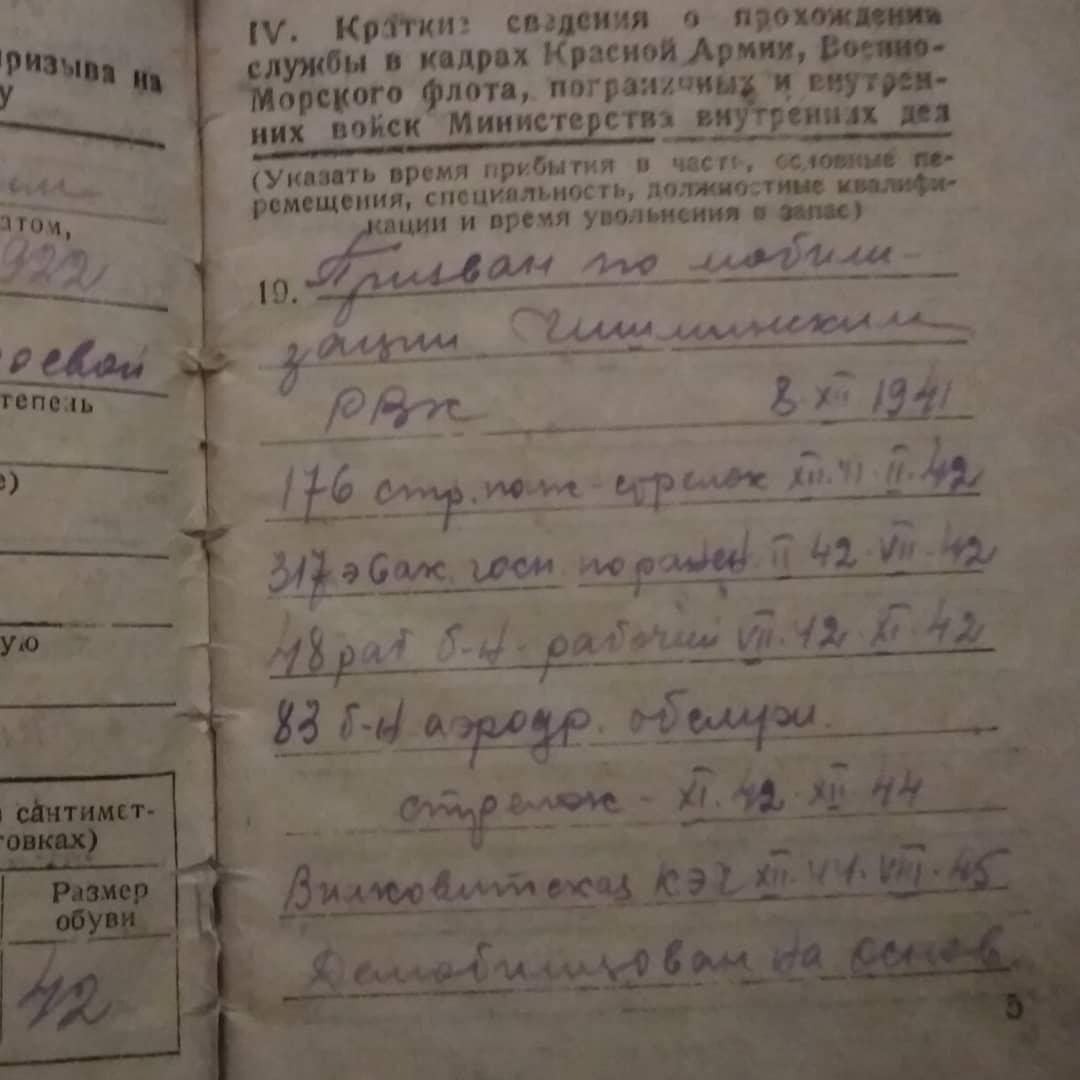 призыва на
у
атом,
922
тепель
е)
ую
сантимет-
товках)
Размер
обуви
42
IV. Краткие сведения о прохождении
службы в кадрах Красной Армии, Военно-
Морского флота, пограничных и внутрен-
них войск Министерства внутренних дел
(Указать время прибытия в часть, основные пе-
ремещения, специальность, должностные квалифи-
кации и время увольнения в запас)
19. Призван по мобили-
зации Чишминским
РВК 8 XII 1941
176 стр. полк стрелок XII.41-II.42
317 эвак. госп. по ранен. II 42-VII-42
48 раб б-н - рабочий VII.42-XI.42
83 б-н аэродр. обслуж.
стрелок - XI.42-XII 44
КЭЧ XII.44-VIII-45
Демобилизован на основ
5